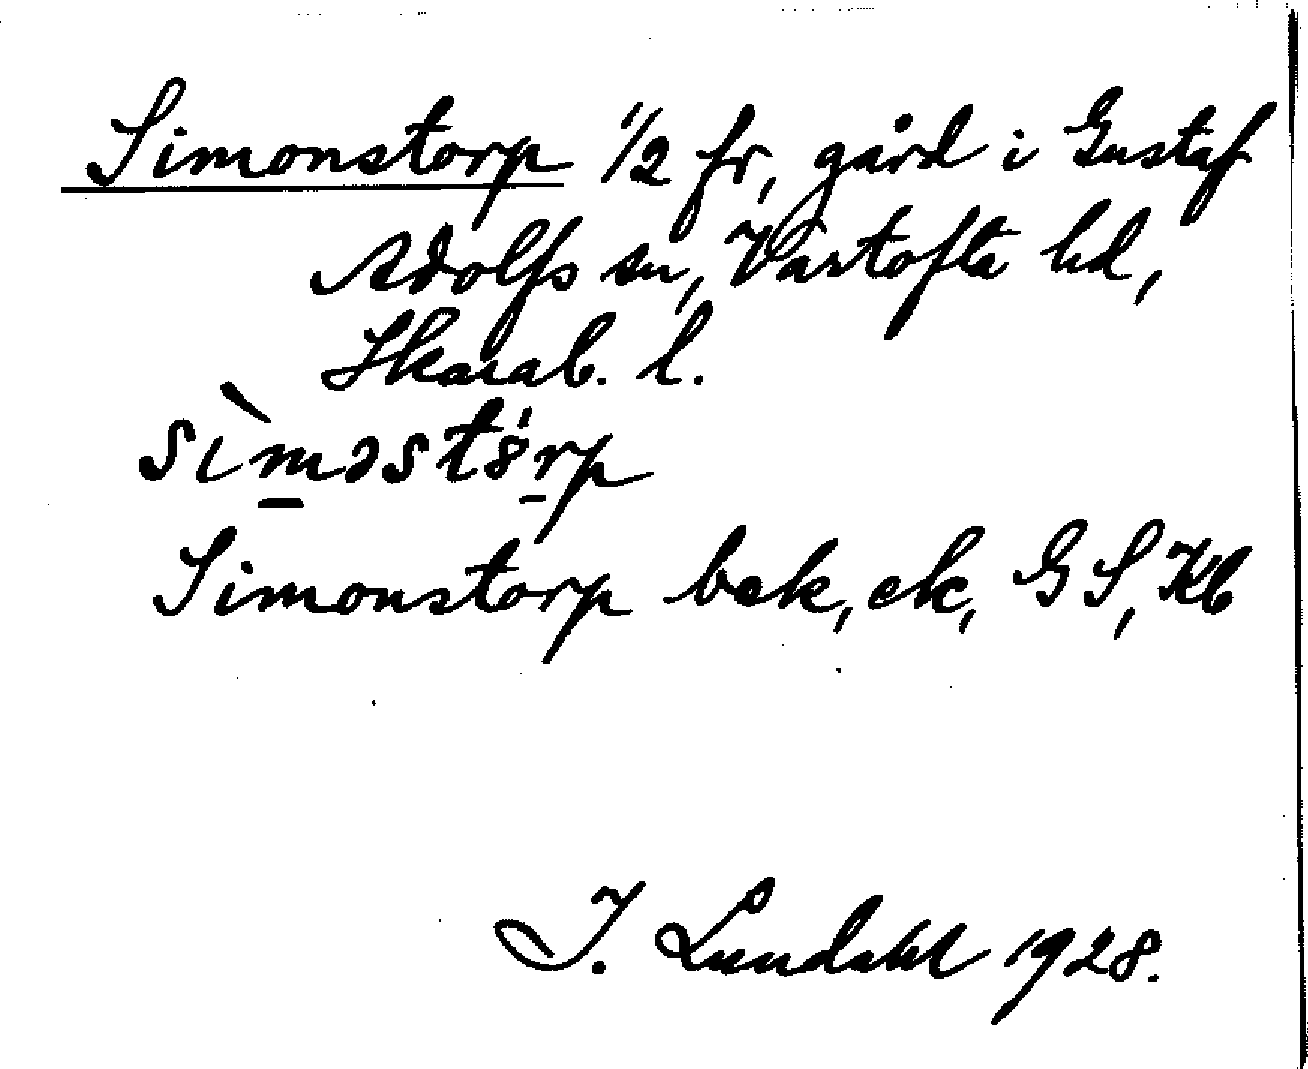 Simonstorp 1/2 fr, gård i Gustaf
Adolfs sn, Vartofta hd,
Skarab. l.
sìməstórp
Simonstorp bek, ek, GS, Kb
I. Lundahl 1928.